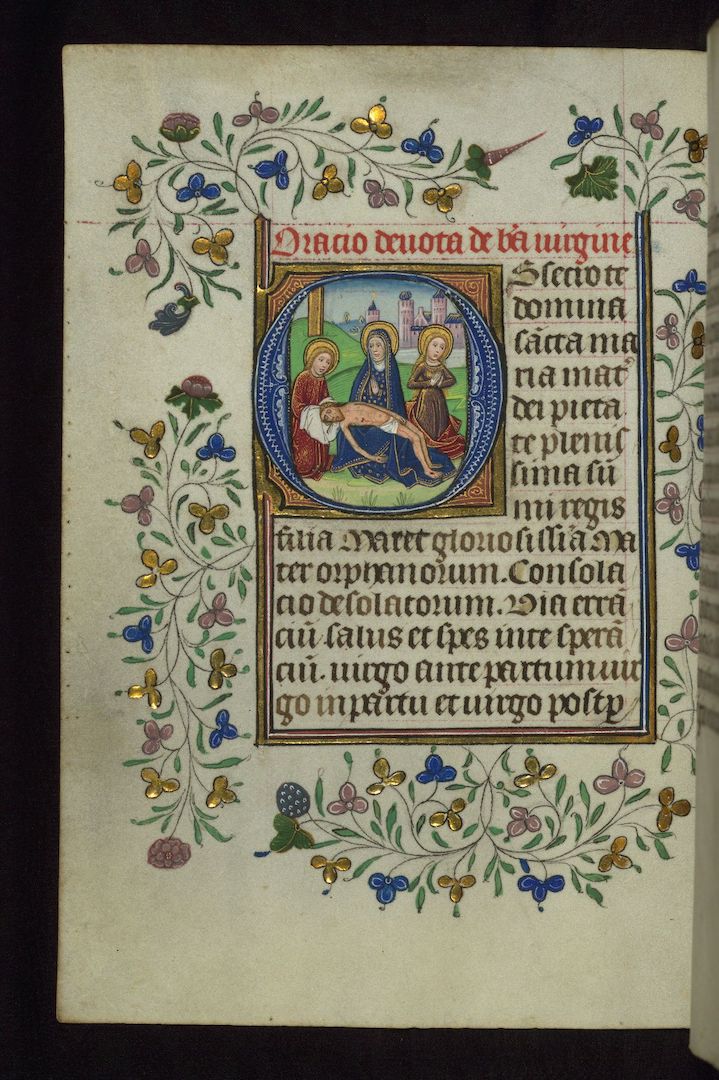 Oracio deuota de bt̄a uirgine
O Bsecro te
domina
sācta ma
ria mat᷑
dei pieta
te plenis
sima sū
mi regis
filia Maret gloriosissīa Ma
ter orphanorum. Consola
cio desolatorum. Via errā
ciū. salus et spes in te sperā
ciū. uirgo ante partum uir
go in partu et uirgo post ꝑ